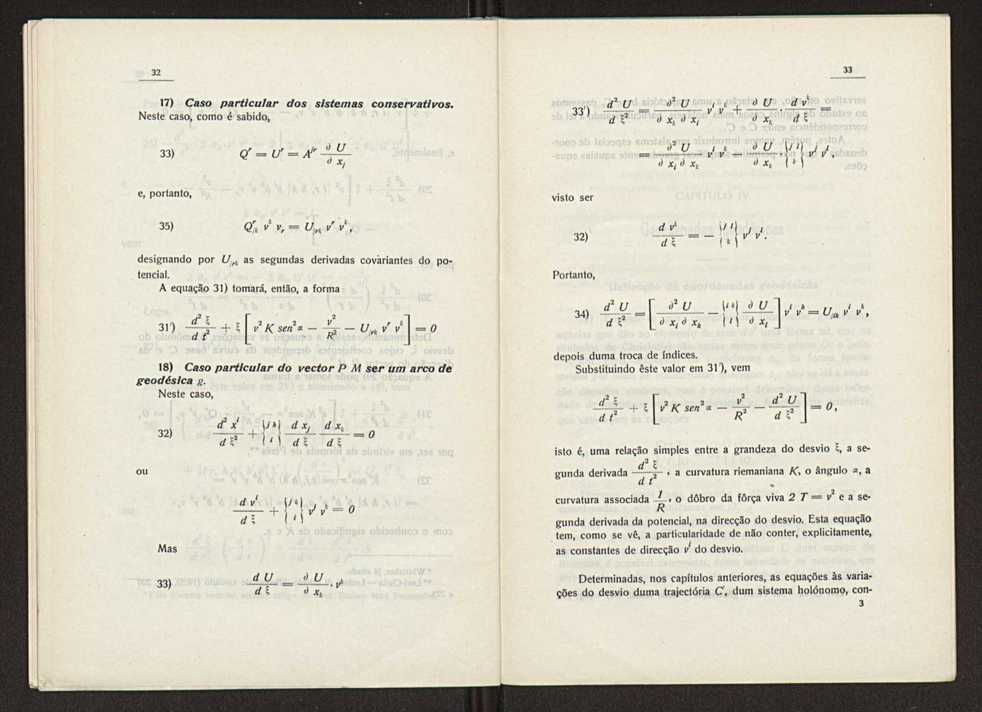 32
17) Caso particular dos sistemas conservativos.
Neste caso, como é sabido,
33) Q^r = U^r = A^{jr} ∂U/∂x_j
e, portanto,
35) Q^r_{/k} v^k v_r = U_{/rk} v^r v^k,
designando por U_{/rk} as segundas derivadas covariantes do po-
tencial.
A equação 31) tomará, então, a forma
31') d²ξ/dt² + ξ [ v² K sen²α − v²/R² − U_{/rk} v^r v^k ] = 0
18) Caso particular do vector P M ser um arco de
geodésica g.
Neste caso,
32) d²x^i/dξ² + {j k / i} dx_j/dξ dx_k/dξ = 0
ou
dv^i/dξ + {j k / i} v^j v^k = 0
Mas
33) dU/dξ = ∂U/∂x_k · v^k
33
33') d²U/dξ² = ∂²U/∂x_k ∂x_i v^i v^k + ∂U/∂x_k · dv^k/dξ =
= ∂²U/∂x_i ∂x_k v^i v^k − ∂U/∂x_k · {j i / k} v^j v^i,
visto ser
32) dv^k/dξ = − {j i / k} v^j v^i.
Portanto,
34) d²U/dξ² = [ ∂²U/∂x_i ∂x_k − {i k / l} ∂U/∂x_l ] v^i v^k = U_{/ik} v^i v^k,
depois duma troca de índices.
Substituindo êste valor em 31'), vem
d²ξ/dt² + ξ [ v² K sen²α − v²/R² − d²U/dξ² ] = 0,
isto é, uma relação simples entre a grandeza do desvio ξ, a se-
gunda derivada d²ξ/dt², a curvatura riemaniana K, o ângulo α, a
curvatura associada 1/R, o dôbro da fôrça viva 2 T = v² e a se-
gunda derivada da potencial, na direcção do desvio. Esta equação
tem, como se vê, a particularidade de não conter, explicitamente,
as constantes de direcção v^i do desvio.
Determinadas, nos capítulos anteriores, as equações às varia-
ções do desvio duma trajectória C, dum sistema holónomo, con-
3